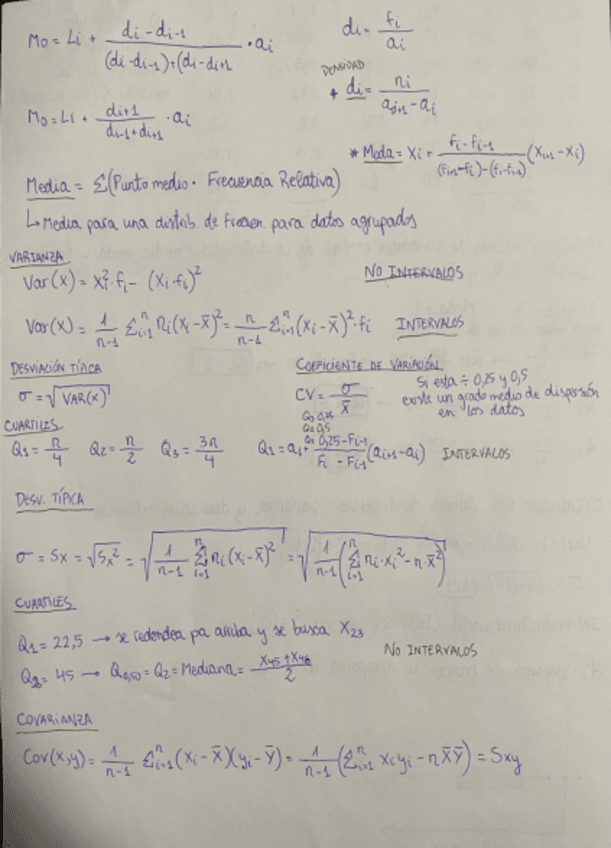 Mo = Li + (di - di-1) / ((di - di-1) + (di - di+1)) · ai    di = fi / ai
DENSIDAD
* di = ni / (ai+1 - ai)
Mo = Li + di+1 / (di-1 + di+1) · ai
* Moda = Xi + (Fi - Fi-1) / ((Fi+1 - fi) - (Fi - fi-1)) (Xi+1 - Xi)
Media = Σ(Punto medio · Frecuencia Relativa)
↳ Media para una distrib. de frecuen. para datos agrupados
VARIANZA
Var(x) = Xi² · fi - (Xi · fi)²    NO INTERVALOS
Var(x) = 1/(n-1) Σi=1^n ni(Xi - X̄)² = n/(n-1) Σi=1^n (Xi - X̄)² · fi    INTERVALOS
DESVIACIÓN TÍPICA    COEFICIENTE DE VARIACIÓN
σ = √VAR(x)    CV = σ / X̄    Si esta ÷ 0,25 y 0,5 existe un grado medio de dispersión en los datos
CUARTILES
Q1 = n/4    Q2 = n/2    Q3 = 3n/4    Q1 = ai + (0,25 - Fi-1) / (Fi - Fi-1) (ai+1 - ai)    INTERVALOS
DESV. TÍPICA
σ = Sx = √Sx² = √(1/(n-1) Σi=1^n ni(xi - x̄)²) = √(1/(n-1) (Σi=1^n ni · xi² - n · x̄²))
CUARTILES
Q1 = 22,5 → se redondea pa arriba y se busca X23
NO INTERVALOS
Q2 = 45 → Q0,50 = Q2 = Mediana = (X45 + X46) / 2
COVARIANZA
Cov(x,y) = 1/(n-1) Σi=1^n (xi - X̄)(yi - Ȳ) = 1/(n-1) (Σi=1^n xi yi - n X̄Ȳ) = Sxy